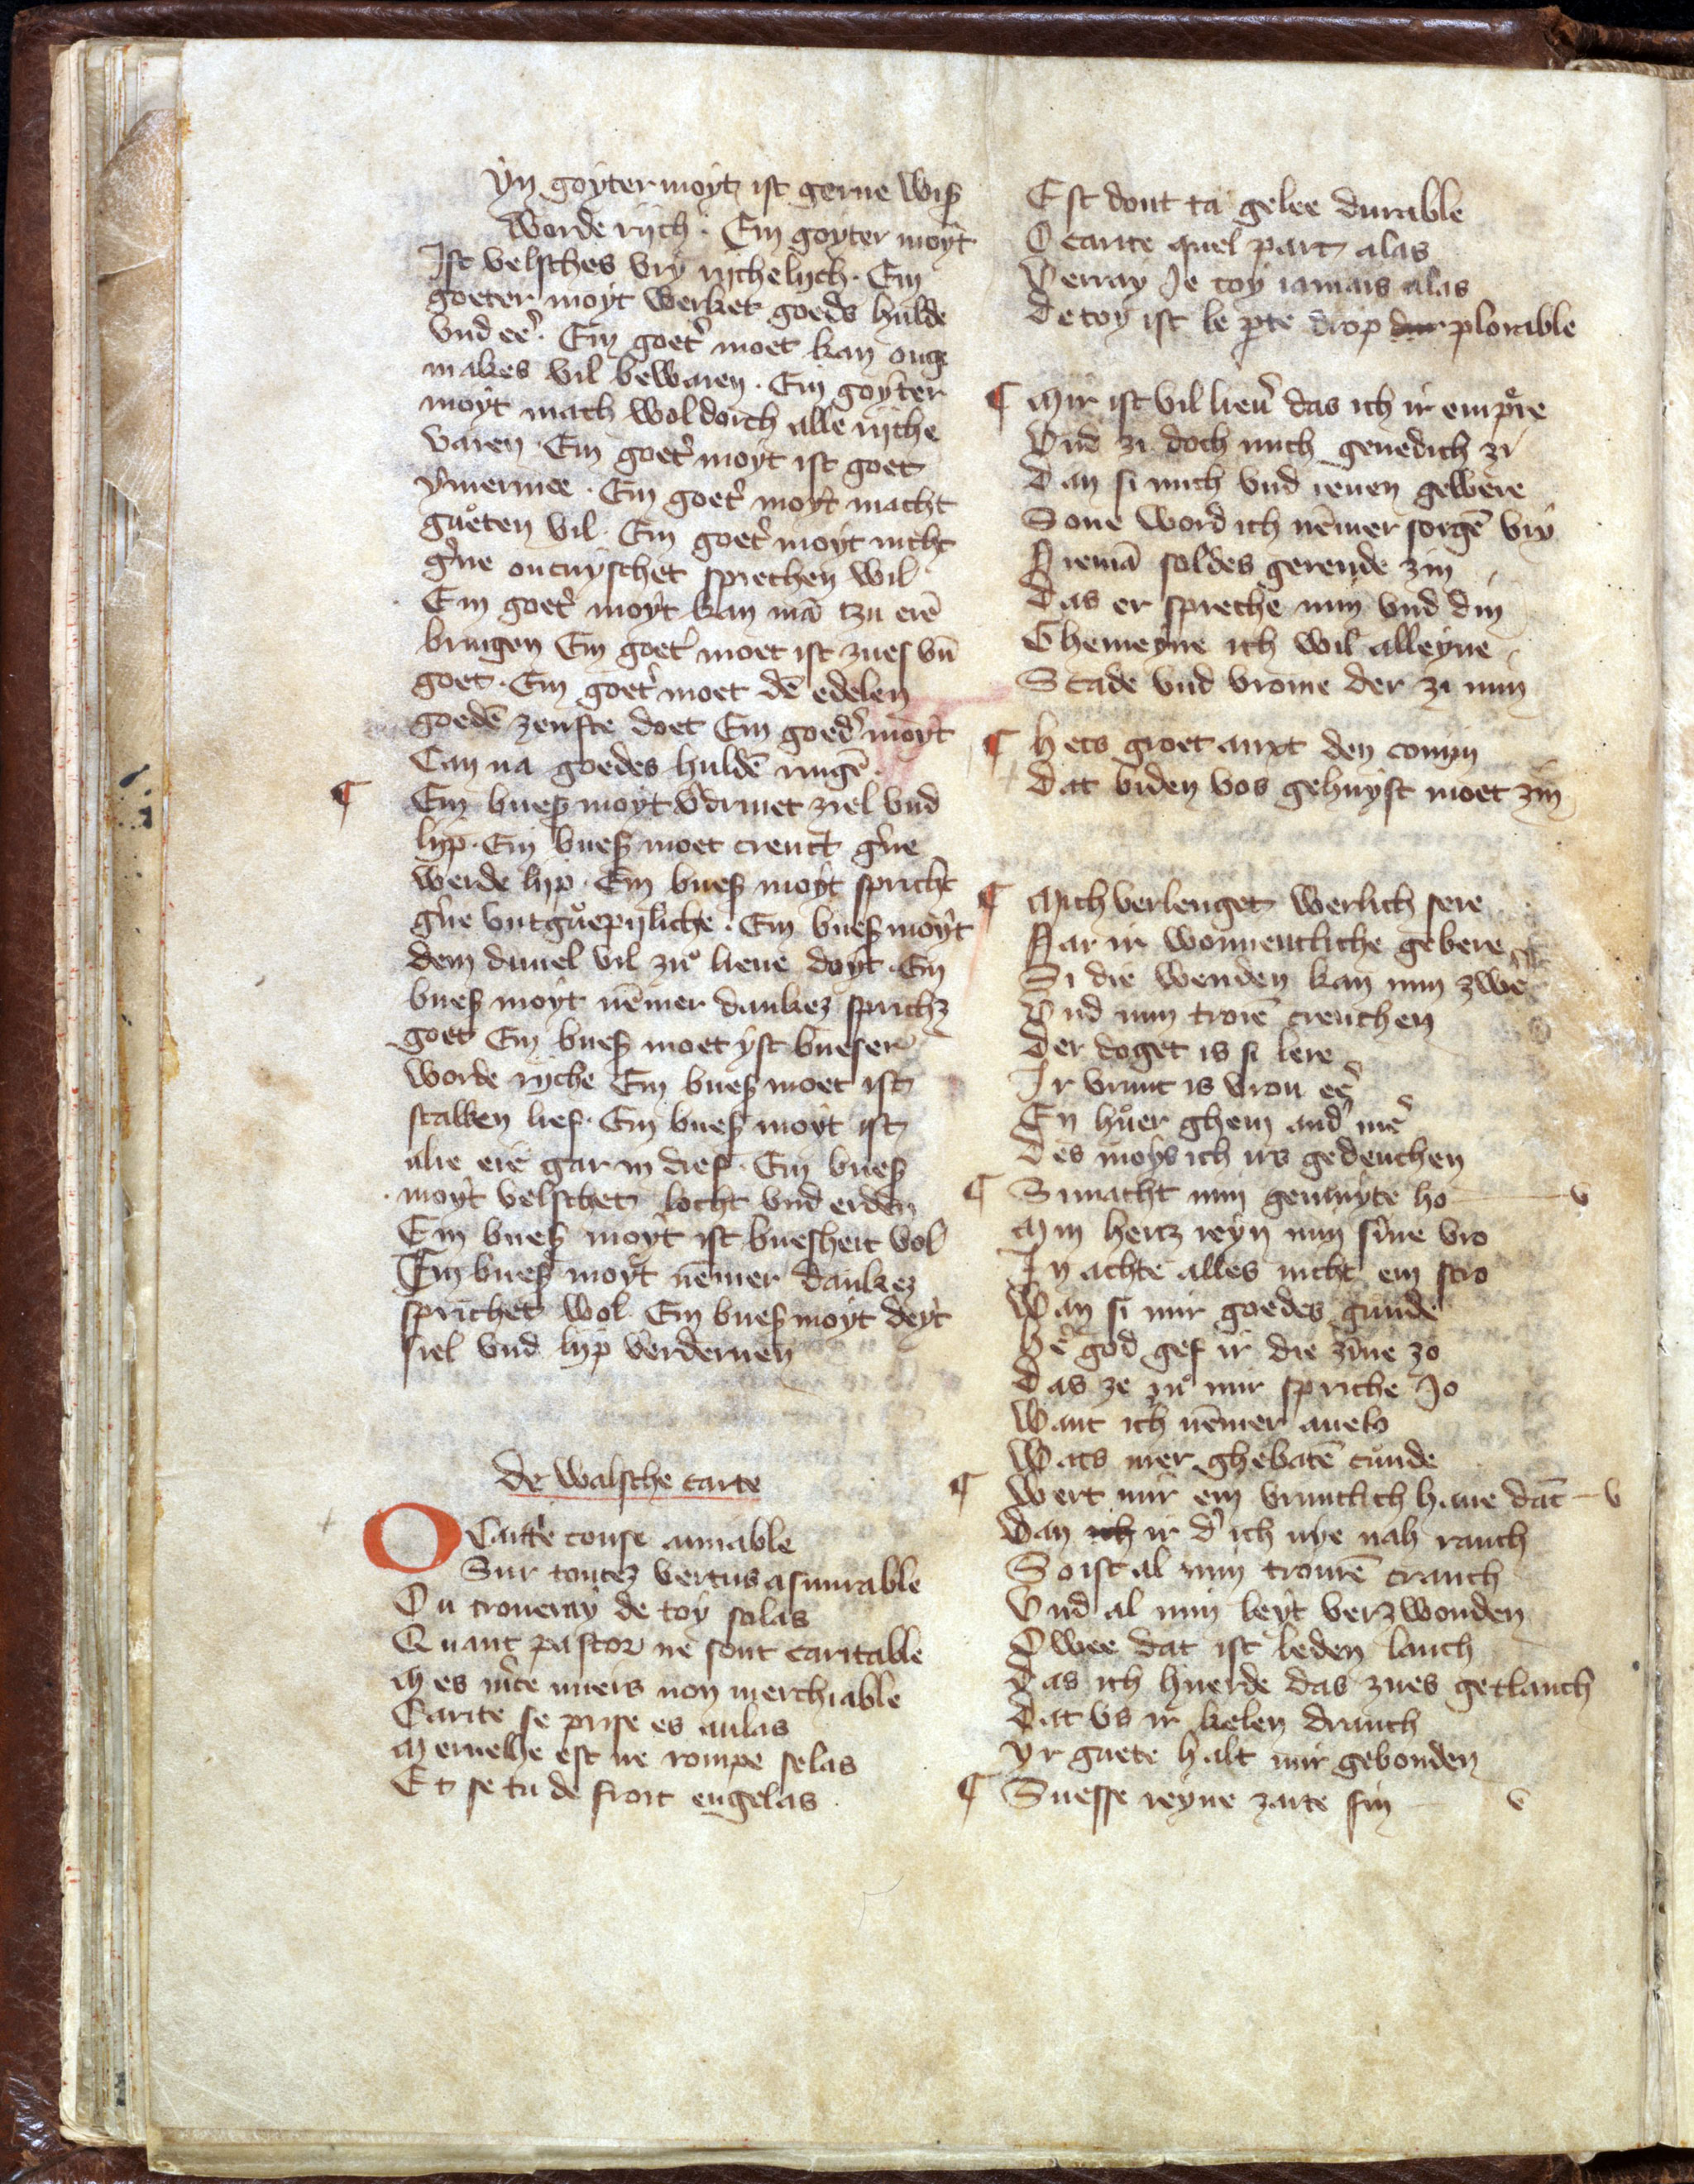 Yn goyter moyt ist gerne wiß
worde rijch · Ein goyter moyt
Ist velsches vry rychelych · Ein
goeter moyt werket goeds hulde
vnd ee᷒ · Ein goet᷒ moet kan ouge
makes vil bewaren · Ein goyter
moyt mach wol dorch alle rijche
varen · Ein goet᷒ moyt ist goet
ymermee · Ein goet᷒ moyt macht
guͦeten vil · Ein goet᷒ moyt nicht
g᷒ne ontuyschet sprechen wil
Ein goet᷒ moyt kan mā tzu erē
bringen Ein goet᷒ moet ist zues vn̄
goet · Ein goet᷒ moet dē edelen
goedē zenfte doet Ein goed᷒ moyt
Can na goedes huldē ringē ·
¶ Ein bueß moyt v᷒driuet ziel vnd
lijp · Ein bueß moet crenct g᷒ne
werde lijp · Ein bueß moyt spricht
g᷒ne vntguͦepijliche · Ein bueß moyt
dem duuel vil zuͦ lieue doyt · Ein
bueß moyt nēmer dankez sprichz
goet Ein bueß moet yst bueser
worde rijche Ein bueß moet ist
scalken lief · Ein bueß moyt ist
alre ere gar in dief · Ein bueß
moyt velschet locht vnd erden
Ein bueß moyt ist buesheit vol
Ein bueß moyt nēmer dankez
sprichet wol Ein bueß moyt deyt
siel vnd lijp verderuen
De walsche carte
O Carite touse amiable
Sur toutez vertus asmirable
Ou troueray de toy solas
Quant pastor ne sont caritable
Mes m᷒te mieis non merchiable
Carite se prise es aulas
Meruelhe est ne rompe selas
Et se tu de froit engelas
Est dont ta gelee durable
O carite quel part alas
Verray Je toy iamais alas
De toy ist le pte drop dur plorable
¶ Mir ist vil lieu᷒ das ich ir empͦre
Vnd zi doch mich genedich zi
Dan si mich vnd ienen gewere
Sone word ich nēmer sorgē vry
Niemā soldes gerende zin
Das er spreche min vnd din
Ghemeyne ich wil alleyne
Stade vnd vrome der zi min
¶ Hets groet anxt den conijn
Dat biden vos gehuyst moet zijn
¶ Mich verlenget werlich sere
Nar ir wonnentliche gebere
Si die wenden kan min zwe᷒
Vnd min trorē crenchen
Der doget is si lere
Ir vrunt is vrou ee᷒
En huͦer ghein and᷒ me᷒
Des moys ich irs gedenchen
¶ Si macht min gemuyte ho v
Min hertz reyn min sinne vro
In achte alles nicht ein stro
Wan si mir goedes gunde
He᷒ god gef ir die zinne zo
Das ze zuͦ mir spriche Jo
Want ich nēmer auelo
Wats mer ghebatē cuͦnde
¶ Wert mir ein vruntlich haue dāc v
Van ich ir d᷒ ich nye nah ranch
So ist al min trourē cranch
Vnd al min leyt verzwonden
Owee dat ist leden lanch
Das ich huerde das zues getlanch
Dat vs ir kelen dranch
Yr guete halt mir gebonden
¶ Suesse reyne zarte fin v